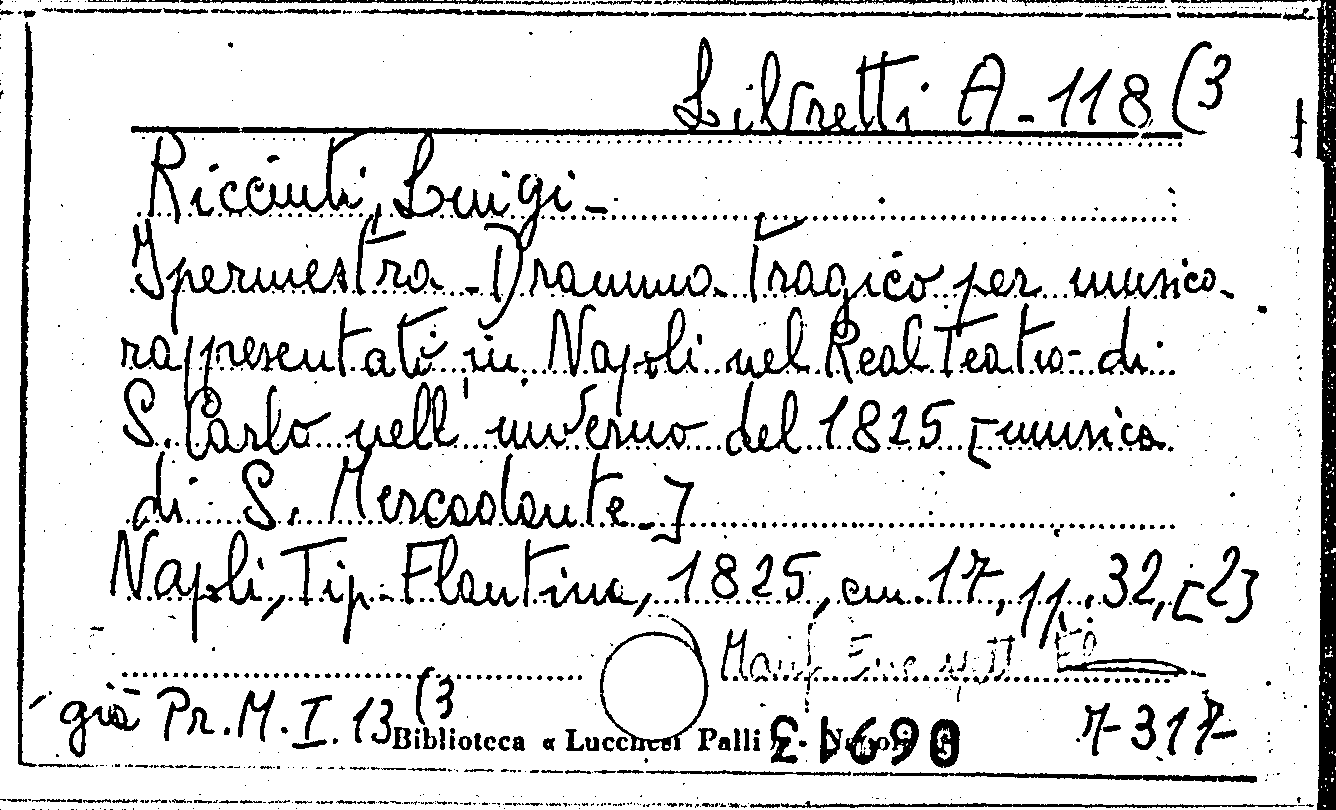 Libretti A-118(3
Ricciuti, Luigi-
Ipermestra - Dramma tragico per musica
rappresentati in Napoli nel Real Teatro di
S. Carlo nell'inverno del 1825 [musica
di S. Mercadante-]
Napoli, Tip. Flautina, 1825, cm. 17, pp. 32, [2]
già Pr. M. I. 13(3
Biblioteca « Lucchesi Palli » - Napoli
7-317-